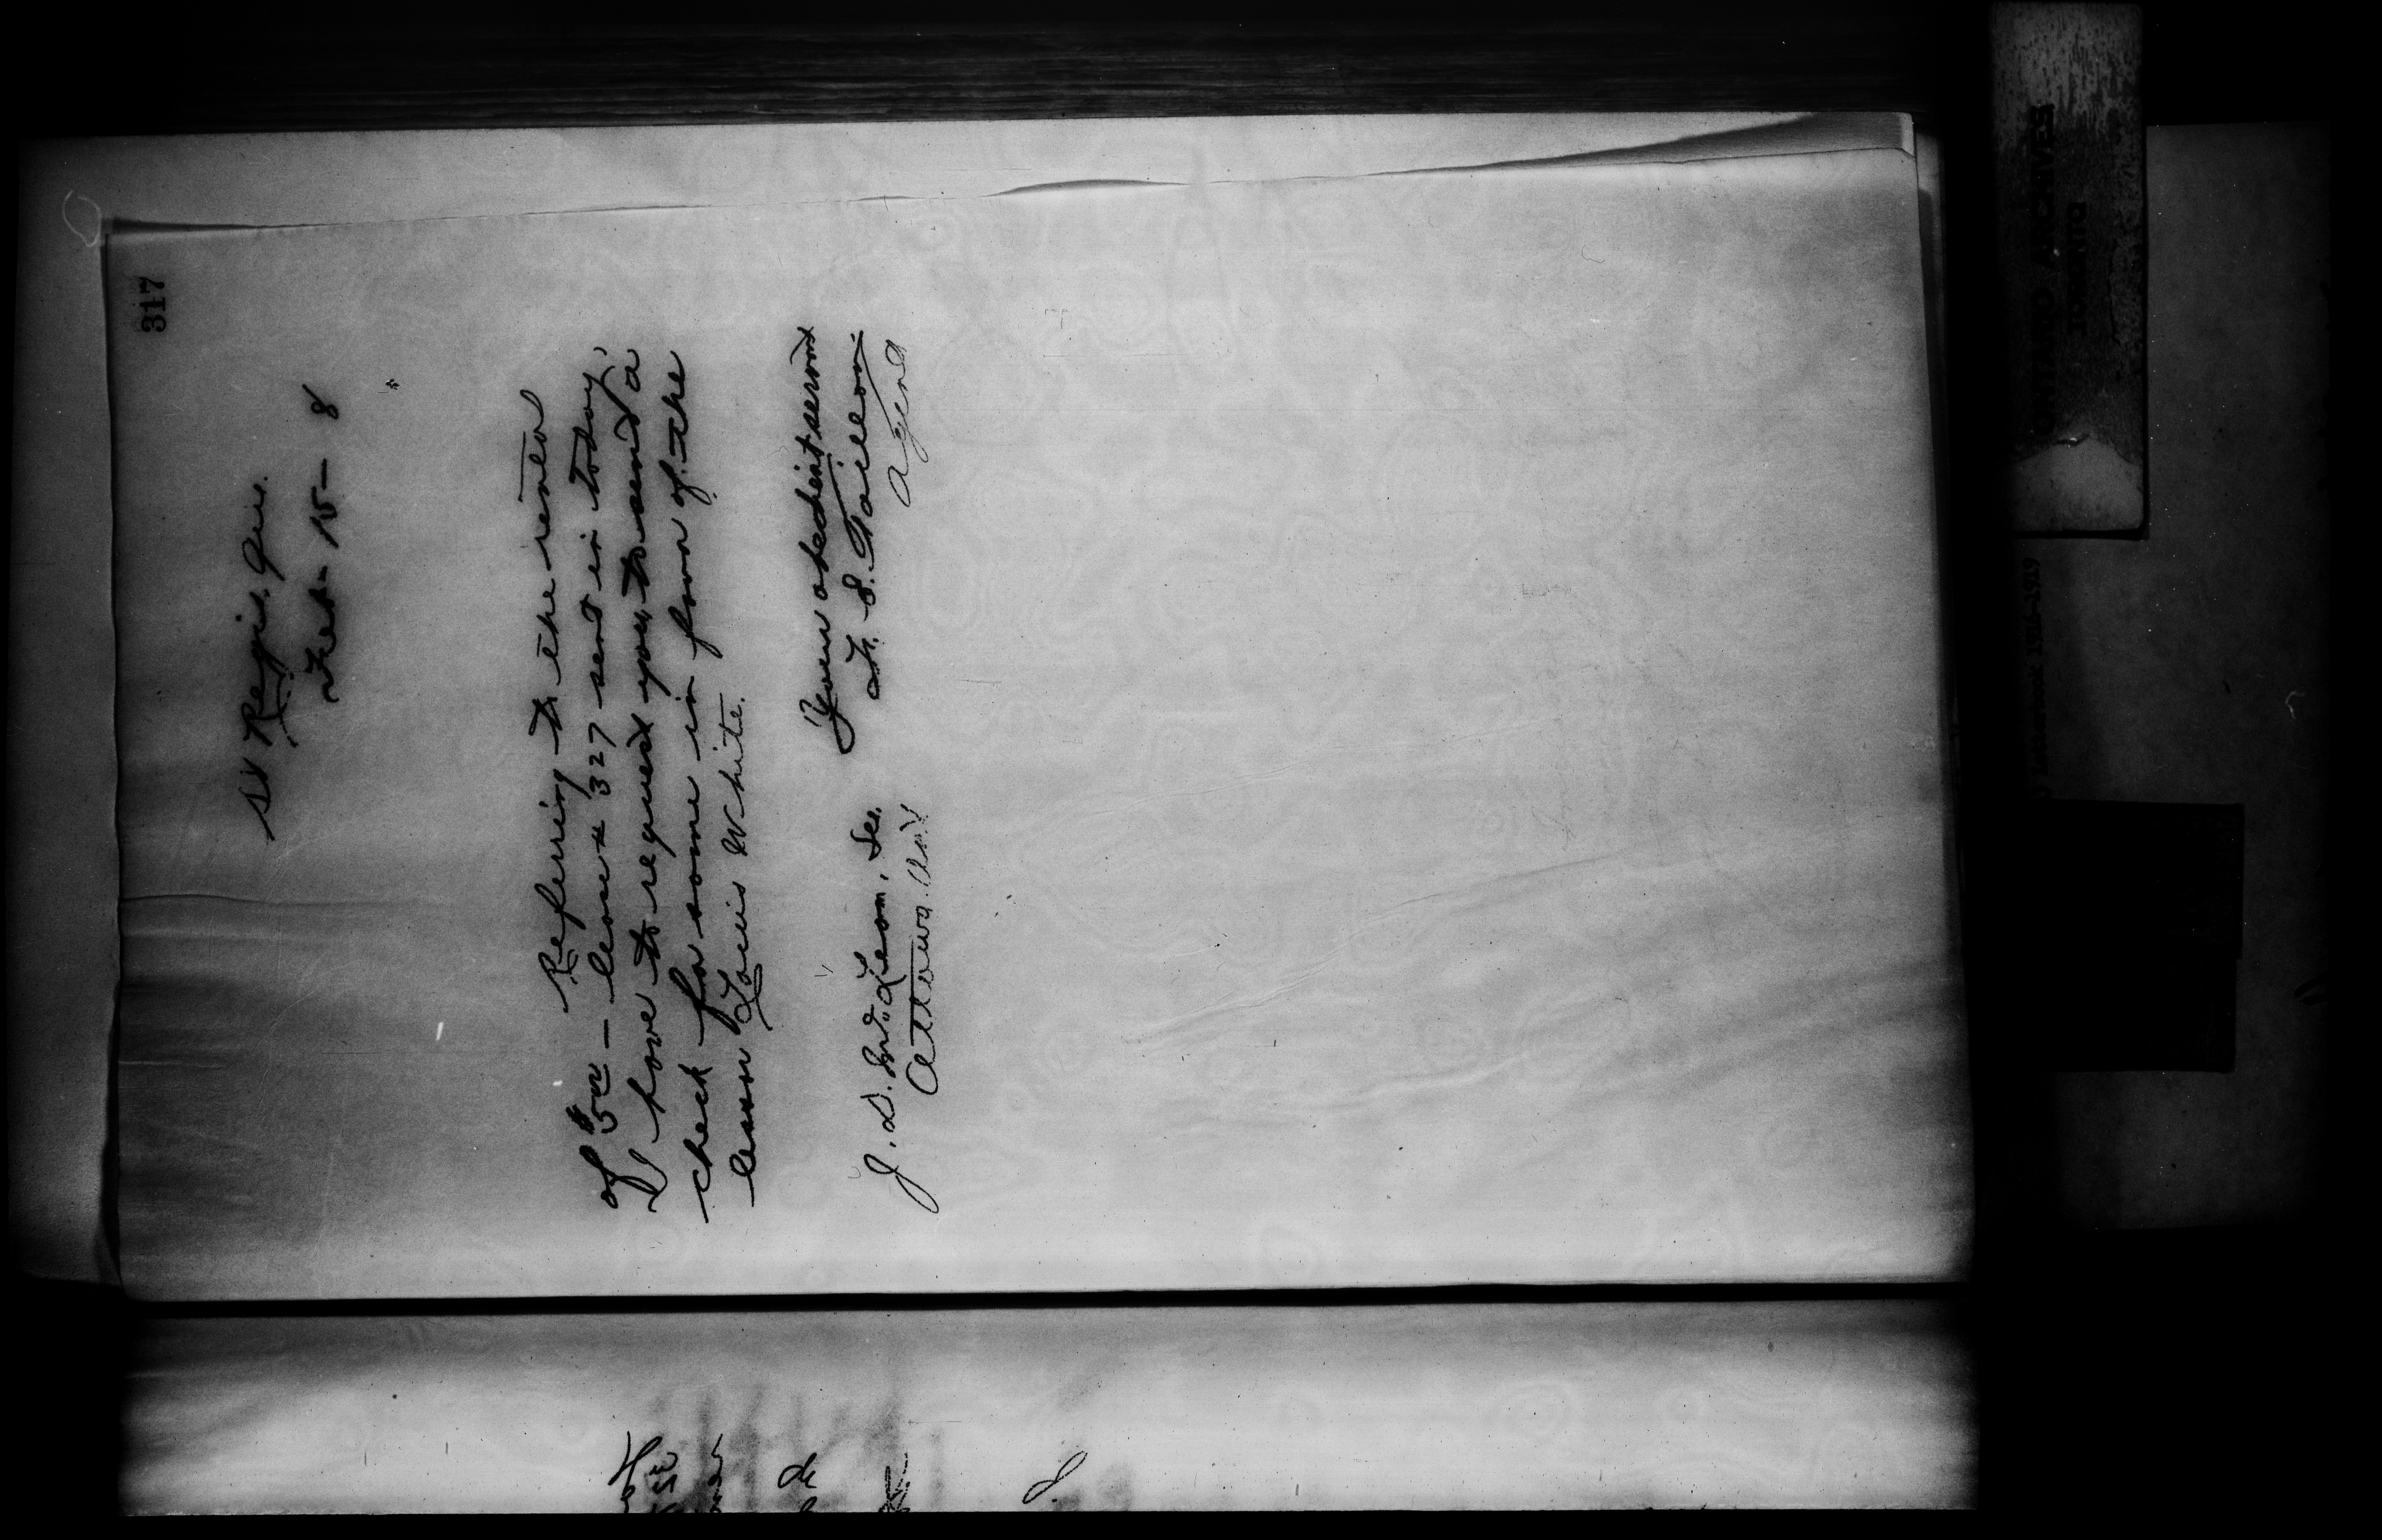 317
St Regis, Que.
Feb - 15 - 8
Referring to the rental
of $5.00 - lease # 327 sent in today,
I have to request you to send a
check for same in favor of the
lessor Louis White.
Your obedient servant
F. E. Taillon
Agent
J. D. McLean, Sec.
Ottawa. Ont
ONTARIO ARCHIVES
TORONTO